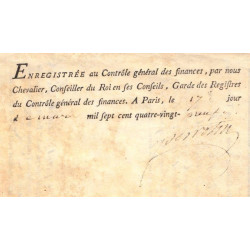 ENREGISTRÉE au Contrôle général des finances, par nous
Chevalier, Conseiller du Roi en ses Conseils, Garde des Registres
du Contrôle général des finances. A Paris, le 17 jour
de mars mil sept cent quatre-vingt-